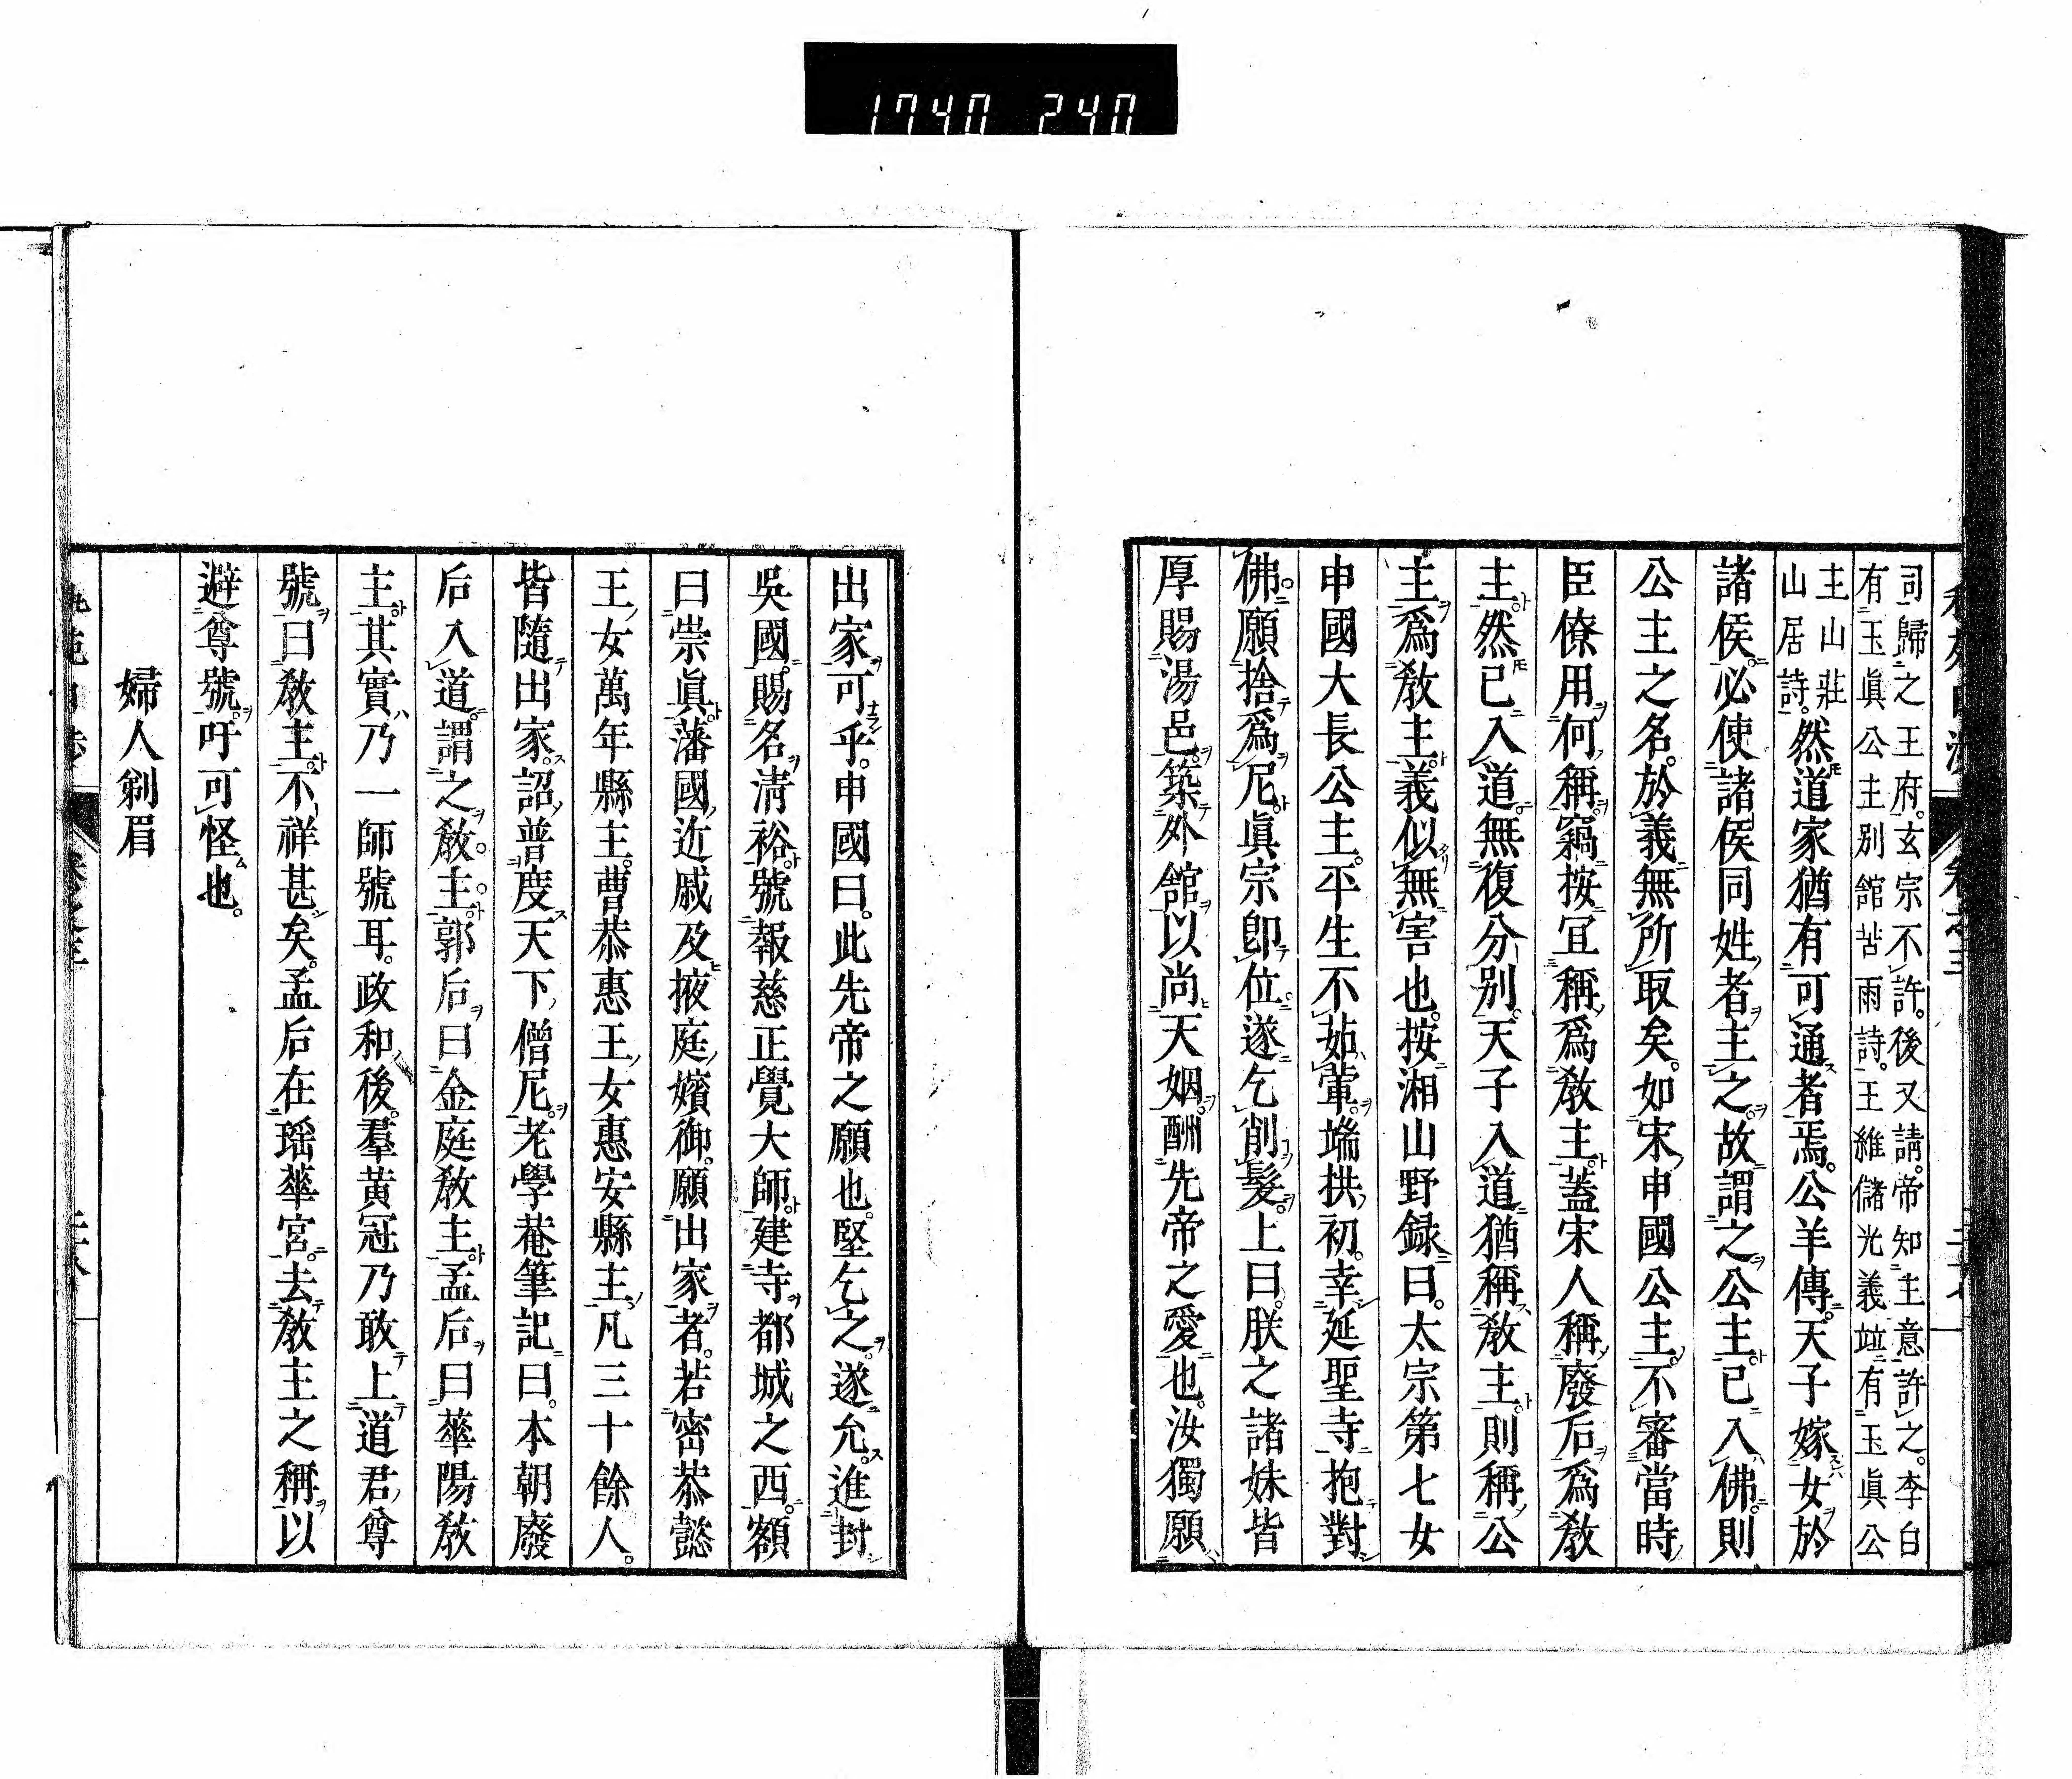 1740 240
司歸之王府。玄宗不許。後又請。帝知主意許之。李白
有玉眞公主別館苦雨詩。王維儲光義並有玉眞公
主山莊
山居詩。
然道家猶有可通者焉。公羊傳。天子嫁女於
諸侯。必使諸侯同姓者主之。故謂之公主。已入佛。則
公主之名。於義無所取矣。如宋申國公主。不審當時
臣僚用何稱。竊按宜稱爲教主。蓋宋人稱廢后爲教
主。然已入道無復分別。天子入道猶稱教主。則稱公
主爲教主。義似無害也。按湘山野録曰。太宗第七女
申國大長公主。平生不茹葷。端拱初。幸延聖寺抱對
佛。願捨爲尼。眞宗卽位。遂乞削髮。上曰。朕之諸妹皆
厚賜湯邑。築外舘以尚天姻。酬先帝之愛也。汝獨願
出家可乎。申國曰。此先帝之願也。堅乞之。遂允。進封
吳國。賜名清裕。號報慈正覺大師。建寺都城之西。額
曰崇眞。藩國近戚及掖庭嬪御。願出家者。若密恭懿
王女萬年縣主。曹恭惠王女惠安縣主。凡三十餘人。
皆隨出家。詔普度天下僧尼。老學菴筆記曰。本朝廢
后入道。謂之教主。郭后曰金庭教主。孟后曰華陽教
主。其實乃一師號耳。政和後。羣黄冠乃敢上道君尊
號曰教主。不祥甚矣。孟后在瑶華宮。去教主之稱以
避尊號。吁可怪也。
婦人剃眉